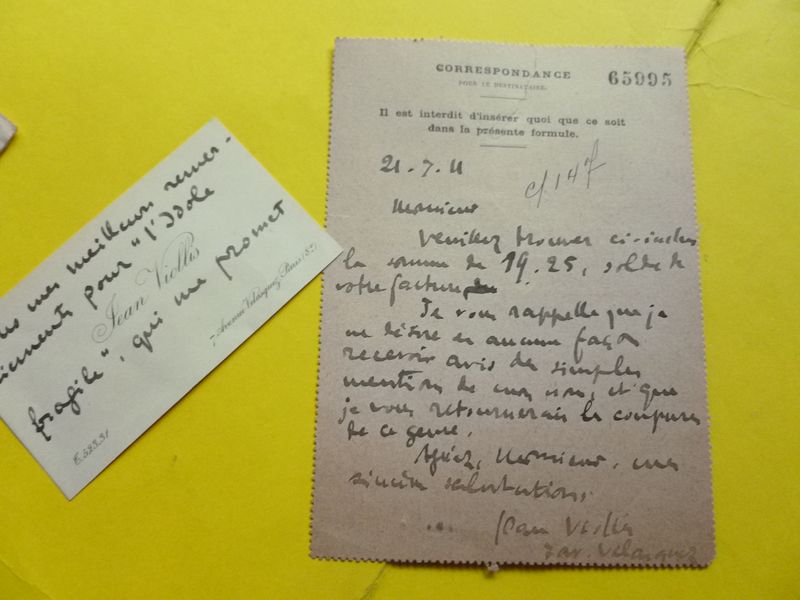 us mes meilleurs remer-
ciements pour "l'Idole
Jean Viollis
7 Avenue Velasquez, Paris (8e)
fragile", qui me promet
E.5293l
CORRESPONDANCE
POUR LE DESTINATAIRE.
65995
Il est interdit d'insérer quoi que ce soit
dans la présente formule.
21.7.11
c/147
Monsieur
Veuillez trouver ci-inclus
la somme de 19.25, solde de
votre facture
Je vous rappelle que je
ne désire en aucune façon
recevoir avis des simples
mentions de mon nom, et que
je vous retournerais les coupures
de ce genre.
Agréez, Monsieur, mes
sincères salutations.
Jean Viollis
7 av. Velasquez